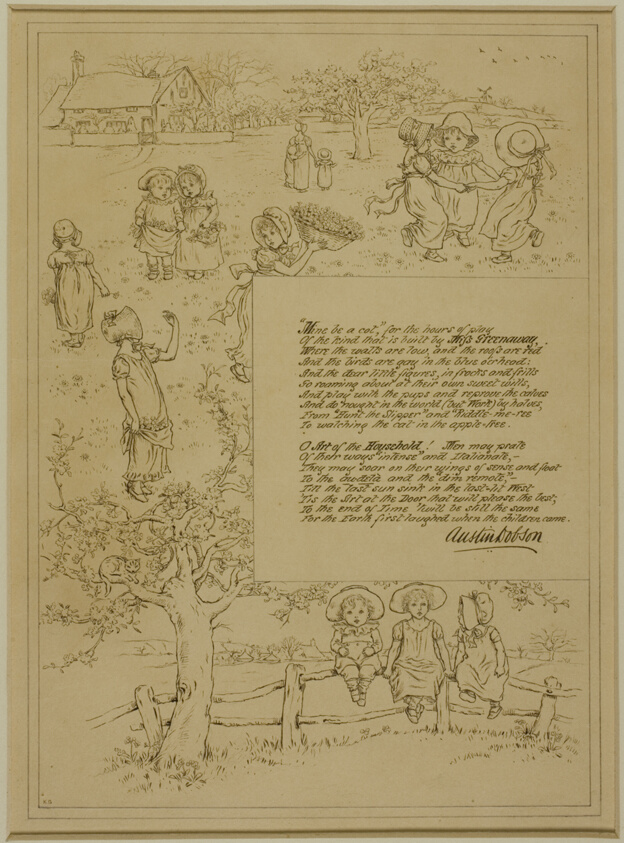 "Mine be a cot," for the hours of play
Of the kind that is built by Miss Greenaway,
Where the walls are low, and the roofs are red
And the birds are gay in the blue o'erhead:
And the dear little figures, in frocks and frills
Go roaming about at their own sweet wills,
And play with the pups and reprove the calves
And do nought in the world (but Work) by halves,
From "Hunt the Slipper" and "Riddle-me-ree
To watching the cat in the apple-tree.
O Art of the Household! Men may prate
Of their ways "intense" and Italianate,–
They may soar on their wings of sense, and float
To the and the "dim remote,"–
Till the last sun sink in the last-lit West
'Tis the Art at the Door that will please the best;
To the end of Time 'twill be still the same
For the Earth first laughed when the children came.
Austin Dobson